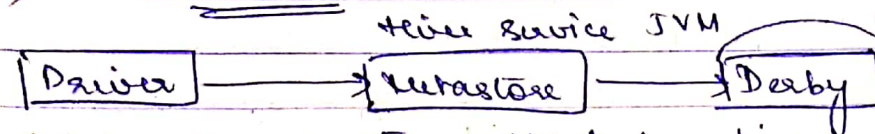 Hive Service JVM
Driver Metastore Derby